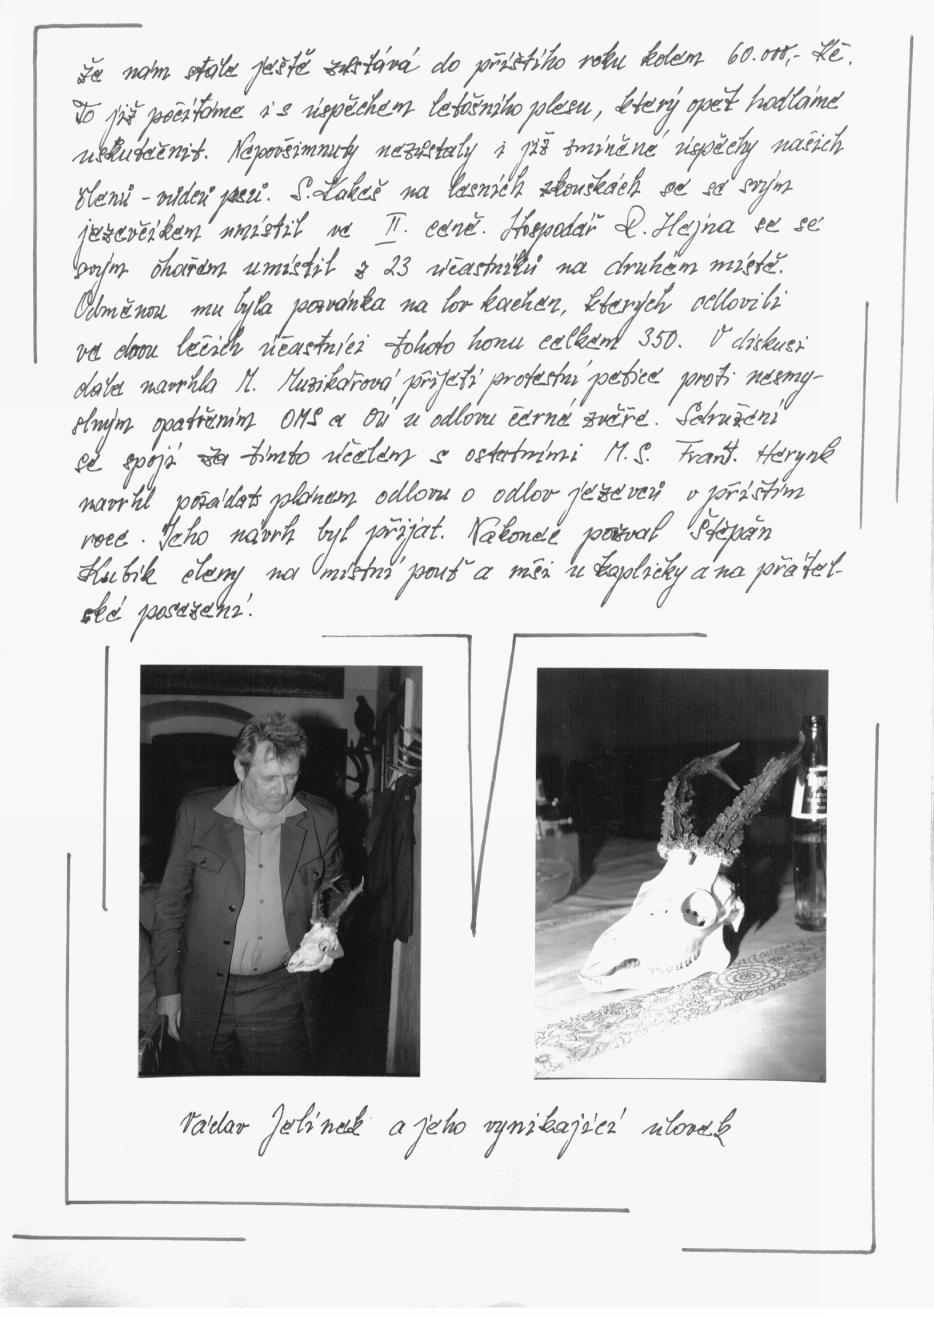 že nám stále ještě zůstává do příštího roku kolem 60.000,- Kč.
To již počítáme i s úspěchem letošního plesu, který opět hodláme
uskutečnit. Nepovšimnuty nezůstaly i již zmíněné úspěchy našich
členů - vůdců psů. S. Lukeš na lesních zkouškách se se svým
jezevčíkem umístil ve II. ceně. Hospodář R. Hejna se se
svým ohařem umístil z 23 účastníků na druhém místě.
Odměnou mu byla pozvánka na lov kachen, kterých odlovili
ve dvou lečích účastníci tohoto honu celkem 350. V diskusi
dále navrhla M. Muzikářová přijetí protestní petice proti nesmy-
slným opatřením OMS a OÚ u odlovu černé zvěře. Sdružení
se spojí za tímto účelem s ostatními M.S. Frant. Herynk
navrhl požádat plánem odlovu o odlov jezevců v příštím
roce. Jeho návrh byl přijat. Nakonec pozval Štěpán
Hlubík členy na místní pouť a mši u kapličky a na přátel-
ské posezení.
Václav Jelínek a jeho vynikající úlovek